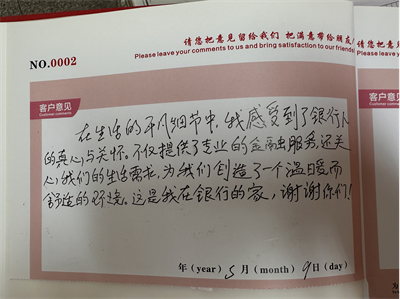 请您把意见留给我们 把满意带给朋友!
Please leave your comments to us and bring satisfaction to our friends!
NO.0002
客户意见
Customer comments
在生活的平凡细节中,我感受到了银行人
的真心与关怀。不仅提供了专业的金融服务,还关
心我们的生活需求,为我们创造了一个温暖而
舒适的环境。这是我在银行的家,谢谢你们!
年(year) 5月(month) 9日(day)
请您把意见
Please leave your
客户意见
Customer comments